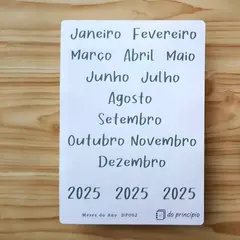 Janeiro Fevereiro
Março Abril Maio
Junho Julho
Agosto
Setembro
Outubro Novembro
Dezembro
2025 2025 2025
Meses do Ano DP092
do princípio